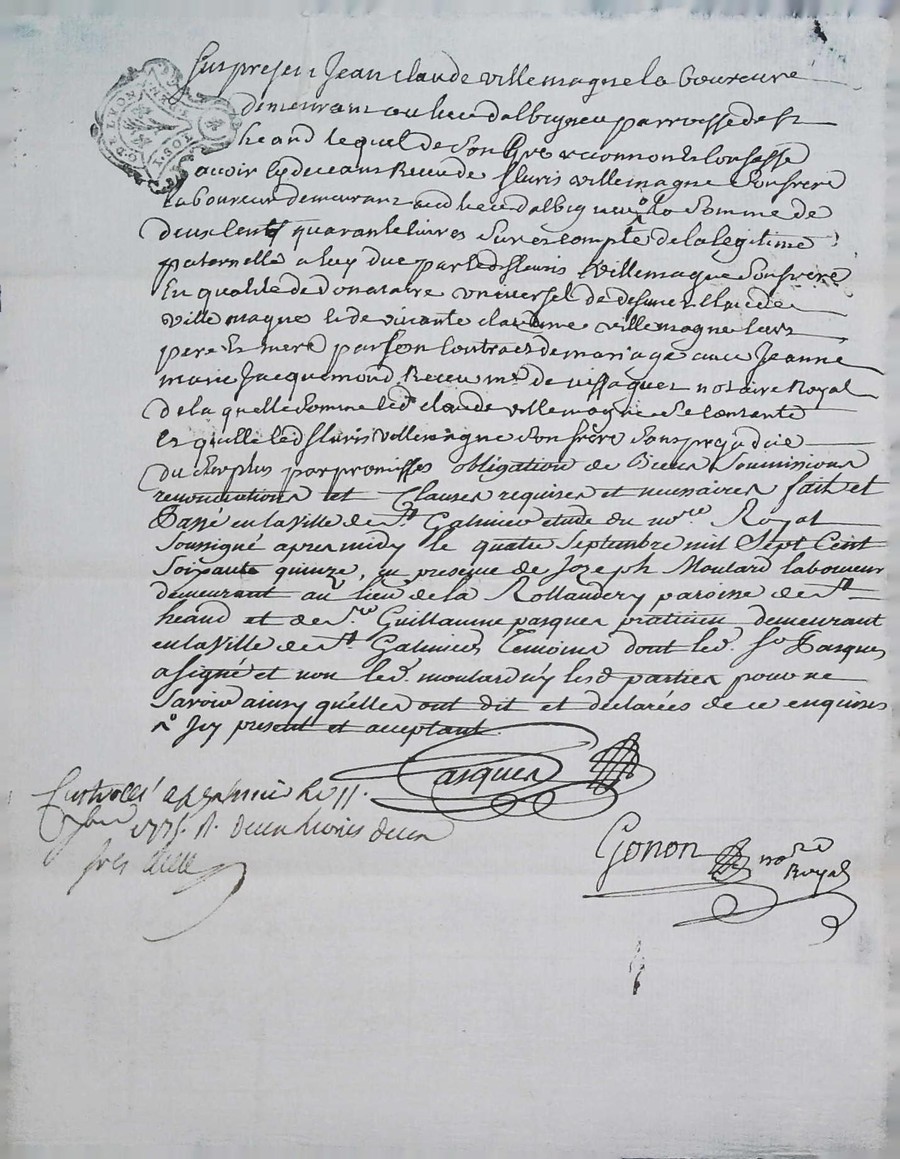 fut present Jean claude villemagne laboureure
demeurant au lieu dalbigneu parroisse de st
heand lequel de son gré reconnoit et confesse
avoir cy devant receu de fleuris villemagne son frere
laboureur demeurant aud lieu dalbigneu ^ la somme de
deux cents quarante livres sur et compte de la legitime
paternelle a luy due par led fleuris villemagne son frere
En qualité de Donataire universel de defunct claude
villemagne et de vivante claudine villemagne leurs
pere et mere par son contract de mariage avec Jeanne
marie Jacquemond Receu me notaire Royal
de la quelle somme led claude villemagne se contante
et quitte led fleuris villemagne son frère sans prejudice
du surplus par promisses obligation de Biens Soumissions
renonciations et Clauses requises et necessaires fait et
Passé en la ville de St Galmier etude du nore Royal
soussigné apres midy le quatre septembre mil Sept Cent
Soixante quinze, en presence de Joseph Moulard laboureur
demeurant au lieu de la Rollandery paroisse de St
heand et de Sr Guillaume pasquer praticien demeurant
en la ville de St Galmier Temoins dont led. Sr Pasquer
a signé et non led. moulard n'y lesd parties pour ne
savoir ainsy qu'elles ont dit et declarées de ce enquises
^ Icy present et acceptant
Pasquer
Controllé a St galmier le 11.
7bre 1775. R. deux livres deux
sols
Gonon nore
Royal
G.D.E LYON